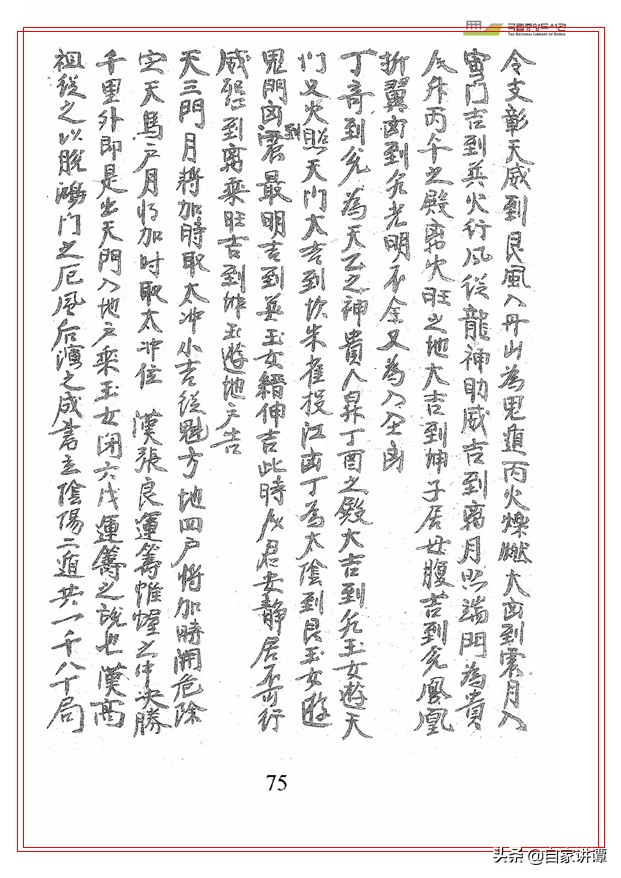 국립중앙도서관
THE NATIONAL LIBRARY OF KOREA
令支彰天威到艮風入丹山為鬼遁丙火燥燃大凶到震月入
雷门吉到巽火行风從龍神助威吉到离月照端門為貴
人升丙午之殿离火旺之地大吉到坤子居母腹吉到兌鳳凰
折翼凶到乾光明不全又為入全凶
丁奇到兌為天乙之神貴人昇丁酉之殿大吉到乾玉女遊天
门又火照天门大吉到坎朱雀投江凶丁為太陰到艮玉女遊
鬼門凶到震最明吉到巽玉女縉伸吉此時人君安静居不可行
威怒到离乘旺吉到坤玉遊地户吉
天三門月将加時取太冲小吉從魁方地四户将加時開危除
定天馬户月将加时取太冲位 漢張良運籌帷幄之中决勝
千里外即是出天門入地户乘玉女闭六戊運籌之說也漢高
祖從之以脫鴻门之厄風后演之成書立陰陽二遁共一千八十局
75
头条 @自家讲谭